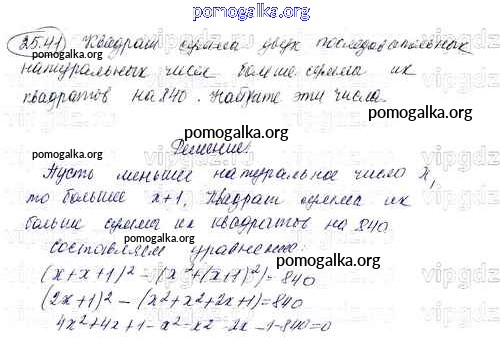 pomogalka.org
25.41 Квадрат суммы двух последовательных
натуральных чисел больше суммы их
квадратов на 840. Найдите эти числа.
pomogalka.org
Решение:
Пусть меньшее натуральное число x,
то большее x+1. Квадрат суммы их
больше суммы их квадратов на 840
составляем уравнение:
(x+x+1)²-(x²+(x+1)²)=840
(2x+1)²-(x²+x²+2x+1)=840
4x²+4x+1-x²-x²-2x-1-840=0